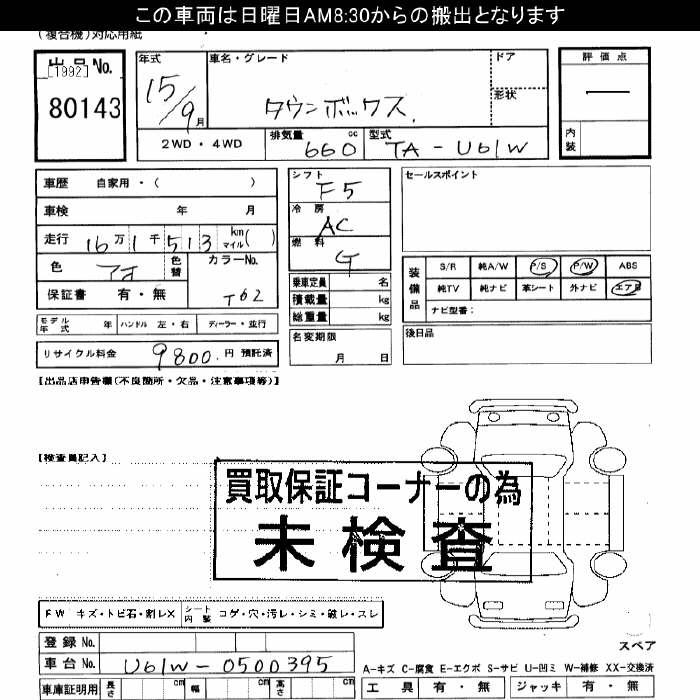 この車両は日曜日AM8:30からの搬出となります
(複合機)対応用紙
出品No. [1992] 80143
年式 15/9月
車名・グレード タウンボックス.
ドア
形状
2WD・4WD
排気量 660 cc
型式 TA-U61W
評価点 —
内装
車歴 自家用・( )
車検 年 月
走行 16万1千513 km マイル( )
色 アオ 色替 カラーNo. T62
保証書 有・無
モデル年式 年 ハンドル 左・右 ディーラー・並行
リサイクル料金 9800.円 預託済
シフト F5
冷房 AC
燃料 G
乗車定員 名
積載量 kg
総重量 kg
名変期限 月 日
セールスポイント
装備品 S/R 純A/W P/S P/W ABS
純TV 純ナビ 革シート 外ナビ エアB
ナビ型番:
後日品
【出品店申告欄(不良箇所・欠品・注意事項等)】
【検査員記入】
買取保証コーナーの為
未検査
FW キズ・トビ石・割レX シート内装 コゲ・穴・汚レ・シミ・破レ・スレ
登録No.
車台No. U61W-0500395
車庫証明用 長さ cm 幅 cm 高さ cm
スペア
A-キズ C-腐食 E-エクボ S-サビ U-凹ミ W-補修 XX-交換済
工具 有・無 ジャッキ 有・無